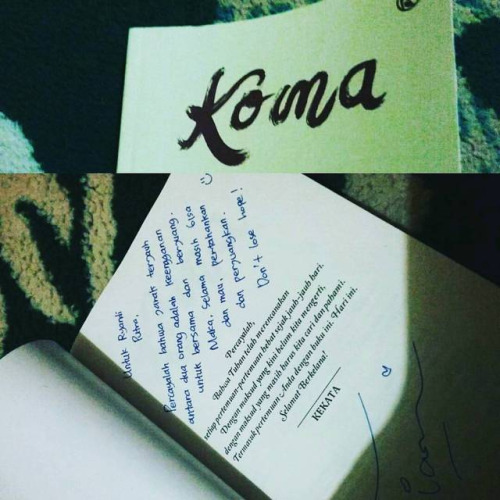 Koma
Untuk Ryandi
Putra,
Percayalah bahwa jarak terjauh
antara dua orang adalah keengganan
untuk bersama dan berjuang.
Maka, selama masih bisa
dan mau, pertahankan
dan perjuangkan.
Don't lose hope!
Percayalah,
Bahwa Tuhan telah merencanakan
setiap pertemuan-pertemuan hebat sejak jauh-jauh hari.
Dengan maksud yang kini belum kita mengerti,
dengan maksud yang masih harus kita cari dan pahami.
Termasuk pertemuan Anda dengan buku ini. Hari ini.
Selamat Berkelana!
KEKATA